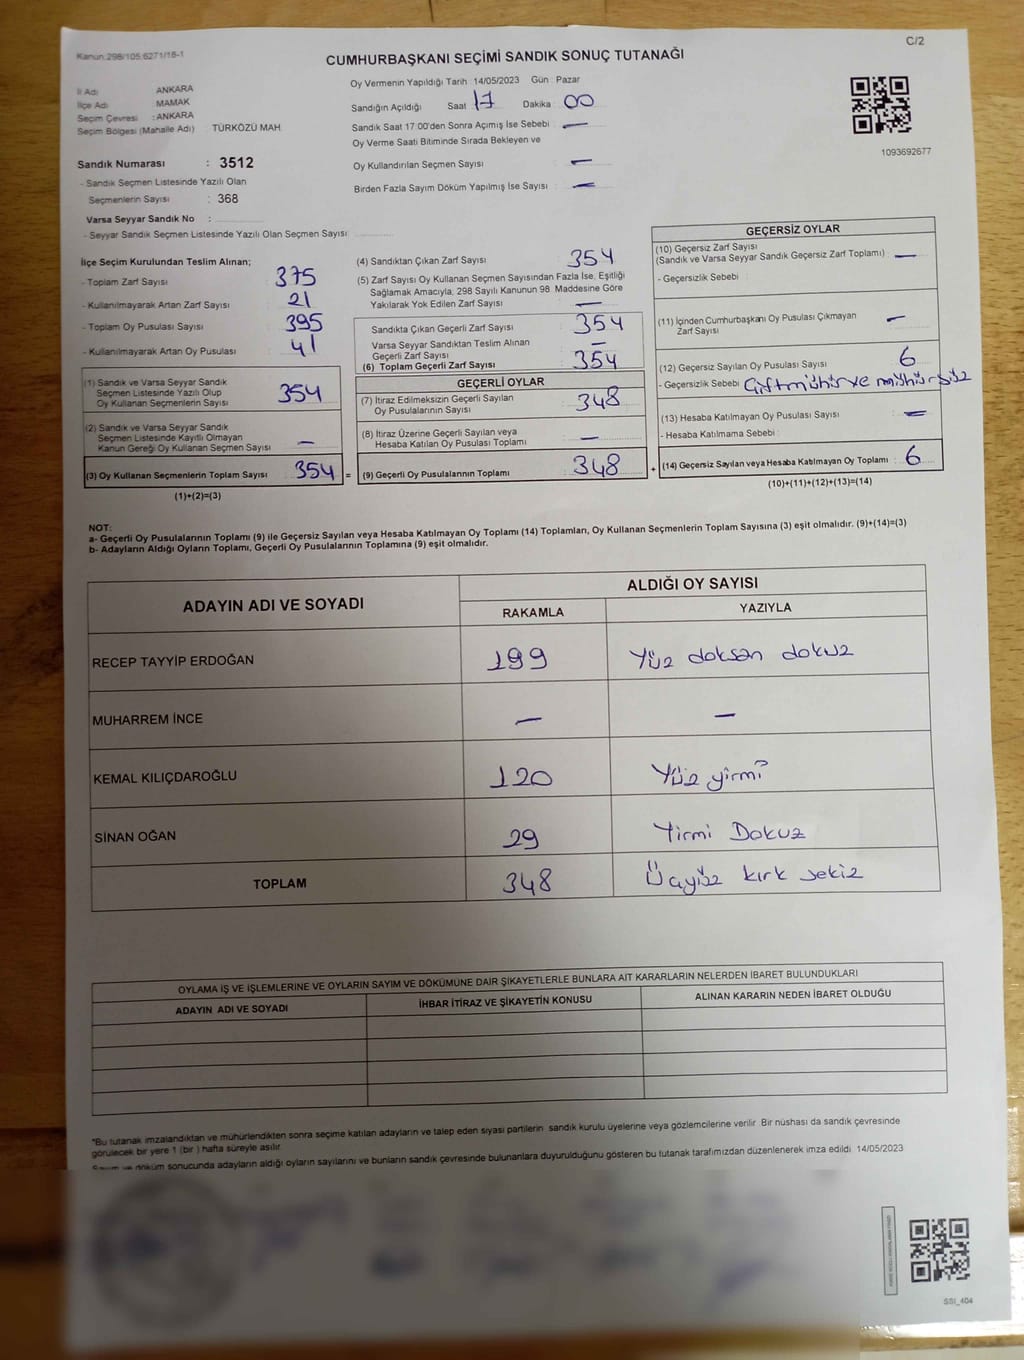 Kanun:298/105.6271/16-1
C/2
CUMHURBAŞKANI SEÇİMİ SANDIK SONUÇ TUTANAĞI
İl Adı ANKARA
İlçe Adı MAMAK
Seçim Çevresi : ANKARA
Seçim Bölgesi (Mahalle Adı) TÜRKÖZÜ MAH.
Oy Vermenin Yapıldığı Tarih 14/05/2023 Gün : Pazar
Sandığın Açıldığı Saat 17 Dakika : 00
Sandık Saat 17:00'den Sonra Açılmış İse Sebebi : —
Oy Verme Saati Bitiminde Sırada Bekleyen ve
Oy Kullandırılan Seçmen Sayısı : —
Birden Fazla Sayım Döküm Yapılmış İse Sayısı : —
1093692677
Sandık Numarası : 3512
- Sandık Seçmen Listesinde Yazılı Olan
Seçmenlerin Sayısı : 368
Varsa Seyyar Sandık No :
- Seyyar Sandık Seçmen Listesinde Yazılı Olan Seçmen Sayısı:
İlçe Seçim Kurulundan Teslim Alınan;
- Toplam Zarf Sayısı : 375
- Kullanılmayarak Artan Zarf Sayısı : 21
- Toplam Oy Pusulası Sayısı : 395
- Kullanılmayarak Artan Oy Pusulası : 41
(1) Sandık ve Varsa Seyyar Sandık
Seçmen Listesinde Yazılı Olup
Oy Kullanan Seçmenlerin Sayısı : 354
(2) Sandık ve Varsa Seyyar Sandık
Seçmen Listesinde Kayıtlı Olmayan
Kanun Gereği Oy Kullanan Seçmen Sayısı : —
(3) Oy Kullanan Seçmenlerin Toplam Sayısı : 354 =
(1)+(2)=(3)
(4) Sandıktan Çıkan Zarf Sayısı : 354
(5) Zarf Sayısı Oy Kullanan Seçmen Sayısından Fazla İse, Eşitliği
Sağlamak Amacıyla, 298 Sayılı Kanunun 98. Maddesine Göre
Yakılarak Yok Edilen Zarf Sayısı : —
Sandıkta Çıkan Geçerli Zarf Sayısı : 354
Varsa Seyyar Sandıktan Teslim Alınan
Geçerli Zarf Sayısı : —
(6) Toplam Geçerli Zarf Sayısı : 354
GEÇERLİ OYLAR
(7) İtiraz Edilmeksizin Geçerli Sayılan
Oy Pusulalarının Sayısı : 348
(8) İtiraz Üzerine Geçerli Sayılan veya
Hesaba Katılan Oy Pusulası Toplamı : —
(9) Geçerli Oy Pusulalarının Toplamı : 348 +
GEÇERSİZ OYLAR
(10) Geçersiz Zarf Sayısı
(Sandık ve Varsa Seyyar Sandık Geçersiz Zarf Toplamı) : —
- Geçersizlik Sebebi :
(11) İçinden Cumhurbaşkanı Oy Pusulası Çıkmayan
Zarf Sayısı : —
(12) Geçersiz Sayılan Oy Pusulası Sayısı : 6
- Geçersizlik Sebebi : Çift mühür ve mühürsüz
(13) Hesaba Katılmayan Oy Pusulası Sayısı : —
- Hesaba Katılmama Sebebi :
(14) Geçersiz Sayılan veya Hesaba Katılmayan Oy Toplamı : 6
(10)+(11)+(12)+(13)=(14)
NOT:
a- Geçerli Oy Pusulalarının Toplamı (9) ile Geçersiz Sayılan veya Hesaba Katılmayan Oy Toplamı (14) Toplamları, Oy Kullanan Seçmenlerin Toplam Sayısına (3) eşit olmalıdır. (9)+(14)=(3)
b- Adayların Aldığı Oyların Toplamı, Geçerli Oy Pusulalarının Toplamına (9) eşit olmalıdır.
ADAYIN ADI VE SOYADI ALDIĞI OY SAYISI
RAKAMLA YAZIYLA
RECEP TAYYİP ERDOĞAN 199 Yüz doksan dokuz
MUHARREM İNCE — —
KEMAL KILIÇDAROĞLU 120 Yüz yirmi
SİNAN OĞAN 29 Yirmi Dokuz
TOPLAM 348 Üçyüz kırk sekiz
OYLAMA İŞ VE İŞLEMLERİNE VE OYLARIN SAYIM VE DÖKÜMÜNE DAİR ŞİKAYETLERLE BUNLARA AİT KARARLARIN NELERDEN İBARET BULUNDUKLARI
ADAYIN ADI VE SOYADI İHBAR İTİRAZ VE ŞİKAYETİN KONUSU ALINAN KARARIN NEDEN İBARET OLDUĞU
*Bu tutanak imzalandıktan ve mühürlendikten sonra seçime katılan adayların ve talep eden siyasi partilerin sandık kurulu üyelerine veya gözlemcilerine verilir. Bir nüshası da sandık çevresinde
görülecek bir yere 1 (bir) hafta süreyle asılır.
Sayım ve döküm sonucunda adayların aldığı oyların sayılarını ve bunların sandık çevresinde bulunanlara duyurulduğunu gösteren bu tutanak tarafımızdan düzenlenerek imza edildi. 14/05/2023
SSI_404